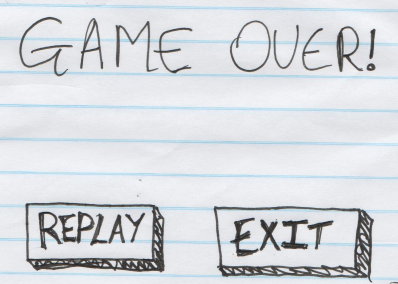 GAME OVER!
REPLAY
EXIT